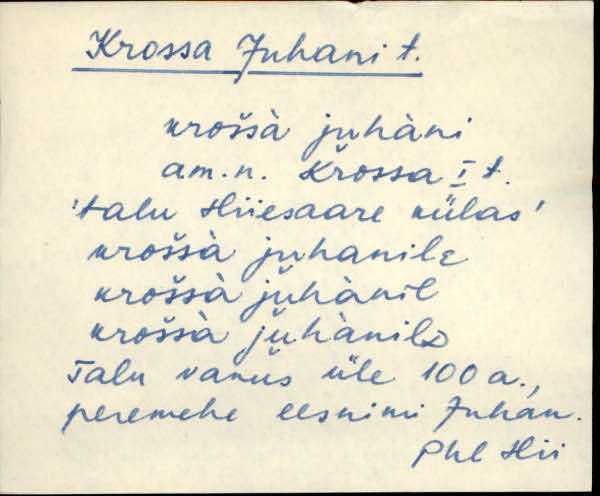 Krossa Juhani t.
krošsà juhàni
am. n. Krossa I t.
'talu Hiiesaare külas'
krošsà juhanile
krošsà juhànil
krošsà juhànilə
Talu vanus üle 100 a.,
peremehe eesnimi Juhan.
Phl Hii